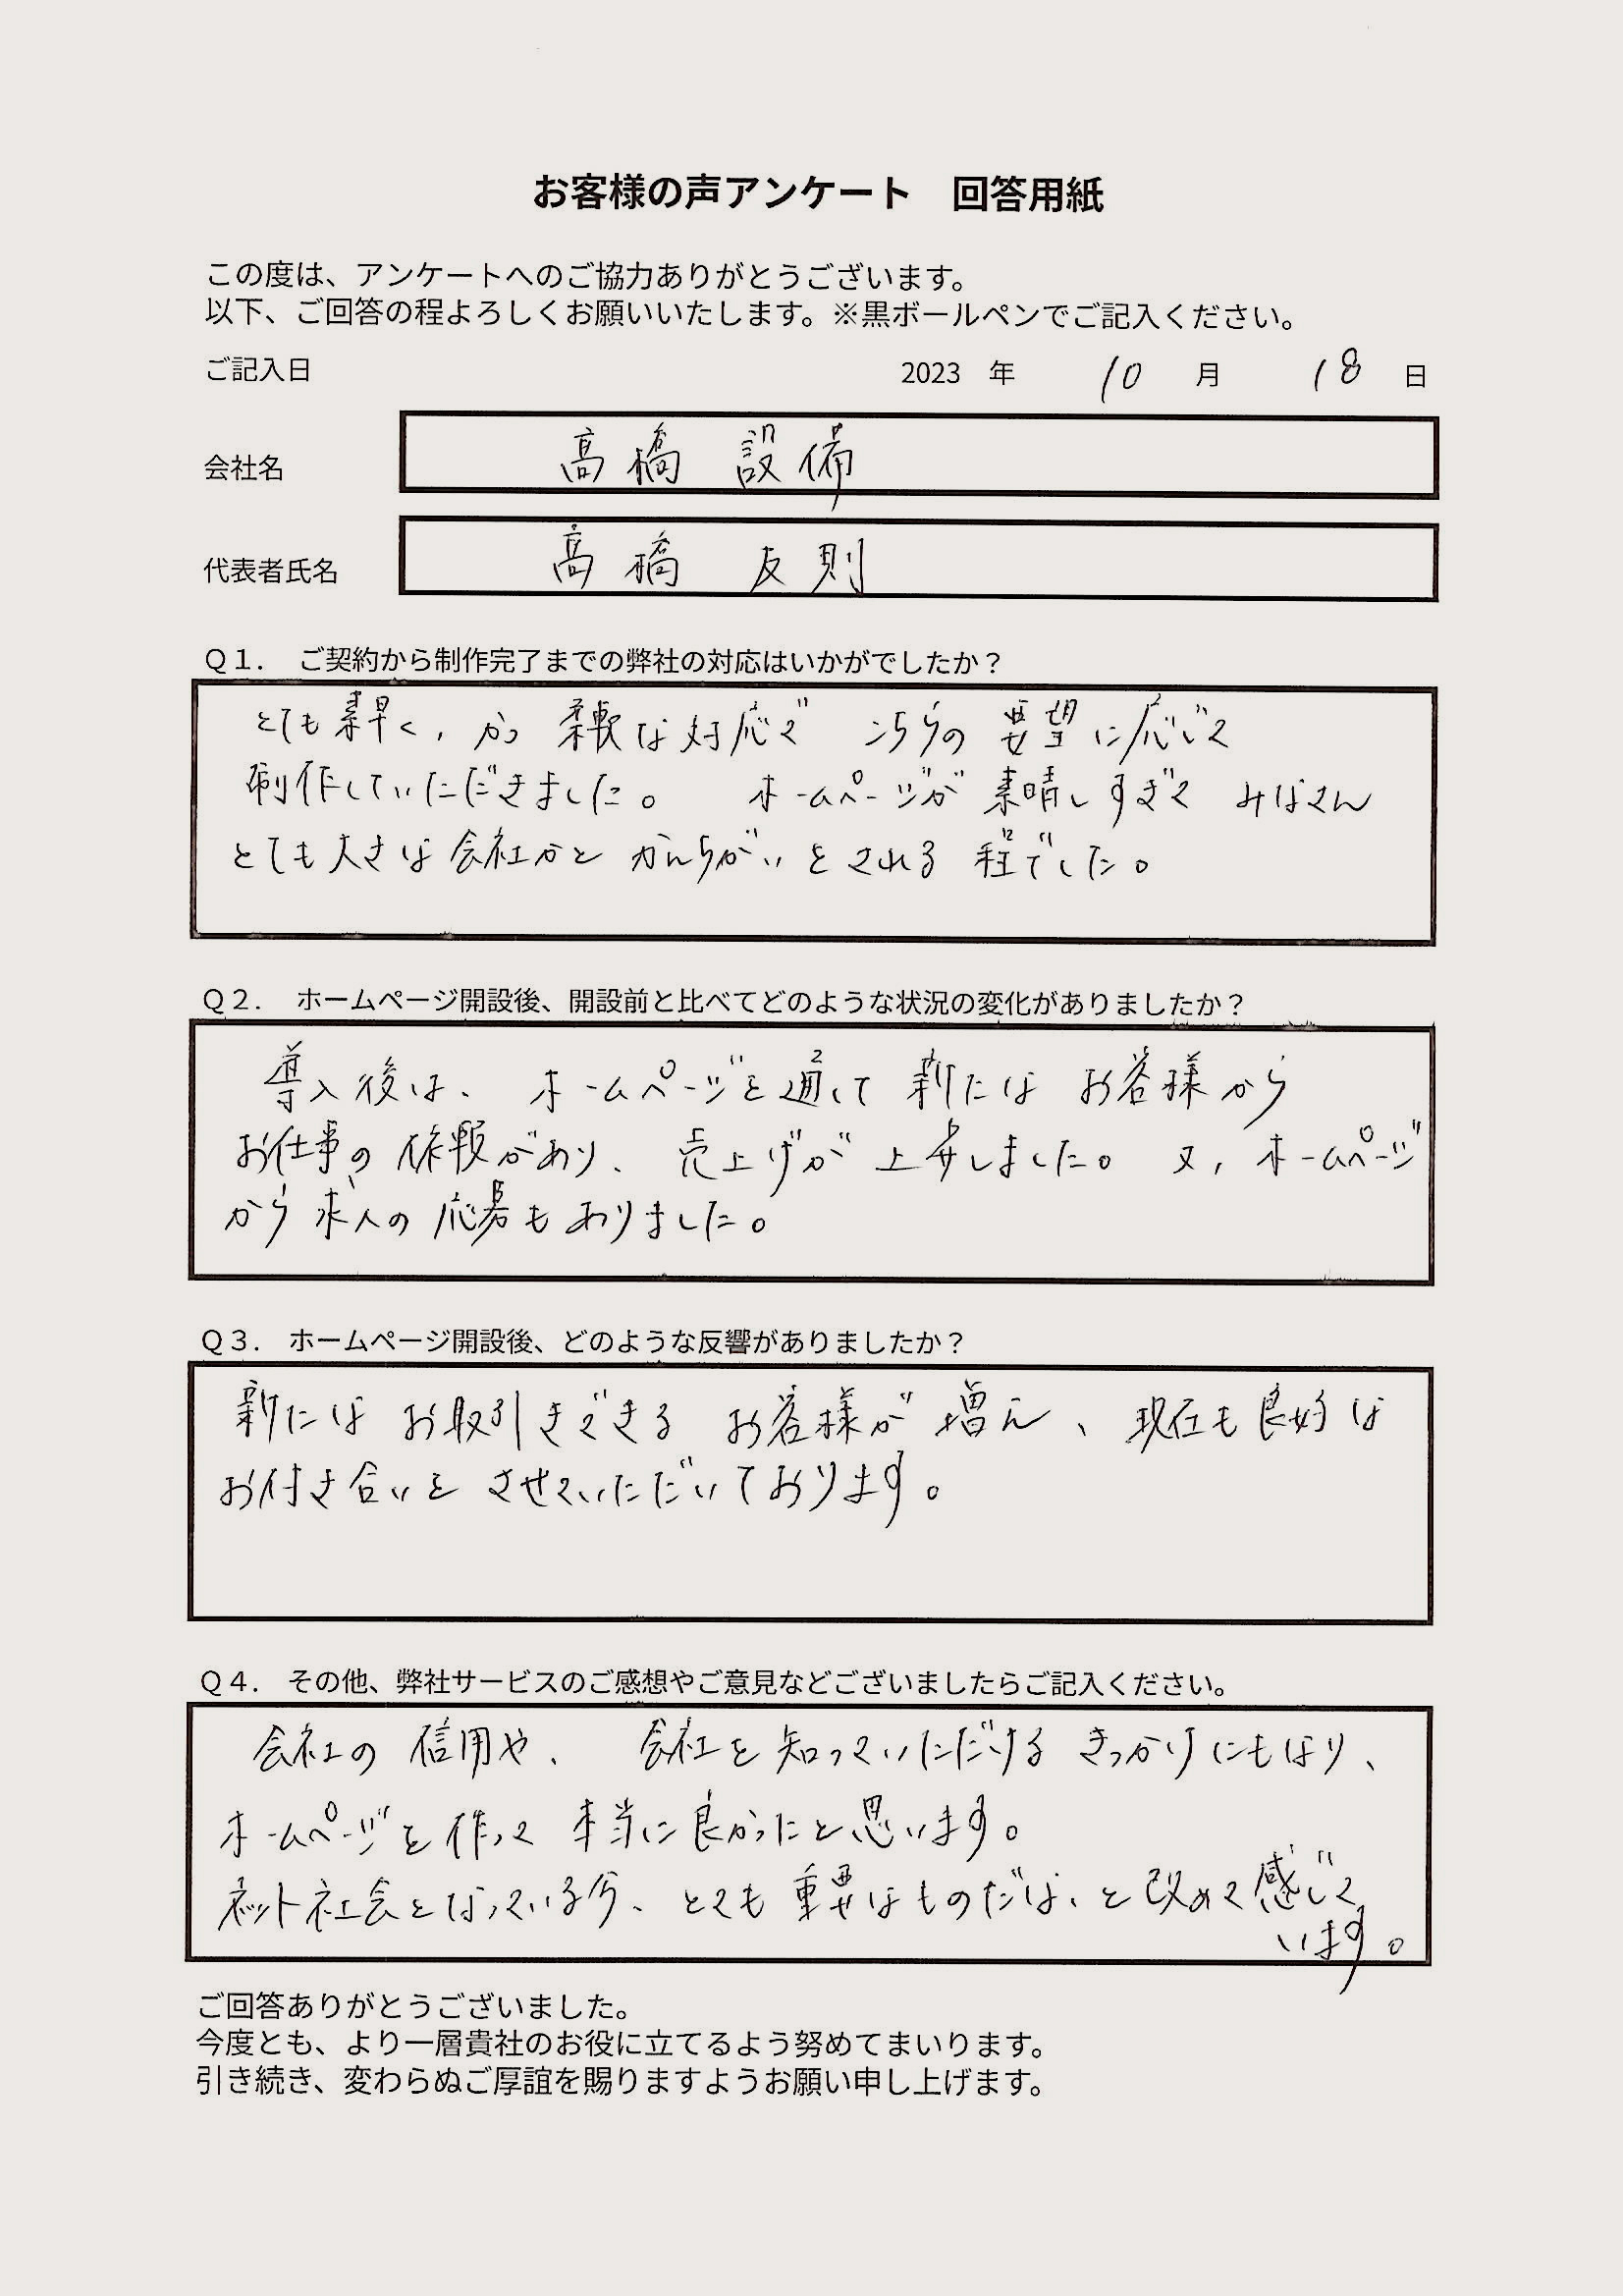 お客様の声アンケート　回答用紙
この度は、アンケートへのご協力ありがとうございます。
以下、ご回答の程よろしくお願いいたします。※黒ボールペンでご記入ください。
ご記入日 2023 年 10 月 18 日
会社名 高橋 設備
代表者氏名 高橋 友則
Q1. ご契約から制作完了までの弊社の対応はいかがでしたか？
とても素早く、かつ 柔軟な対応で こちらの 要望に応じて
制作していただきました。 ホームページが 素晴しすぎて みなさん
とても大きな会社かと かんちがいをされる 程でした。
Q2. ホームページ開設後、開設前と比べてどのような状況の変化がありましたか？
導入後は、 ホームページを通して 新たな お客様から
お仕事の依頼があり、 売上げが 上昇しました。 又、ホームページ
から 求人の応募もありました。
Q3. ホームページ開設後、どのような反響がありましたか？
新たな お取引きできる お客様が 増え、現在も良好な
お付き合いを させていただいております。
Q4. その他、弊社サービスのご感想やご意見などございましたらご記入ください。
会社の 信用や、 会社を知っていただける きっかけにもなり、
ホームページを作って 本当に良かったと思います。
ネット社会となっている今、とても 重要なものだな、と改めて感じて
います。
ご回答ありがとうございました。
今度とも、より一層貴社のお役に立てるよう努めてまいります。
引き続き、変わらぬご厚誼を賜りますようお願い申し上げます。